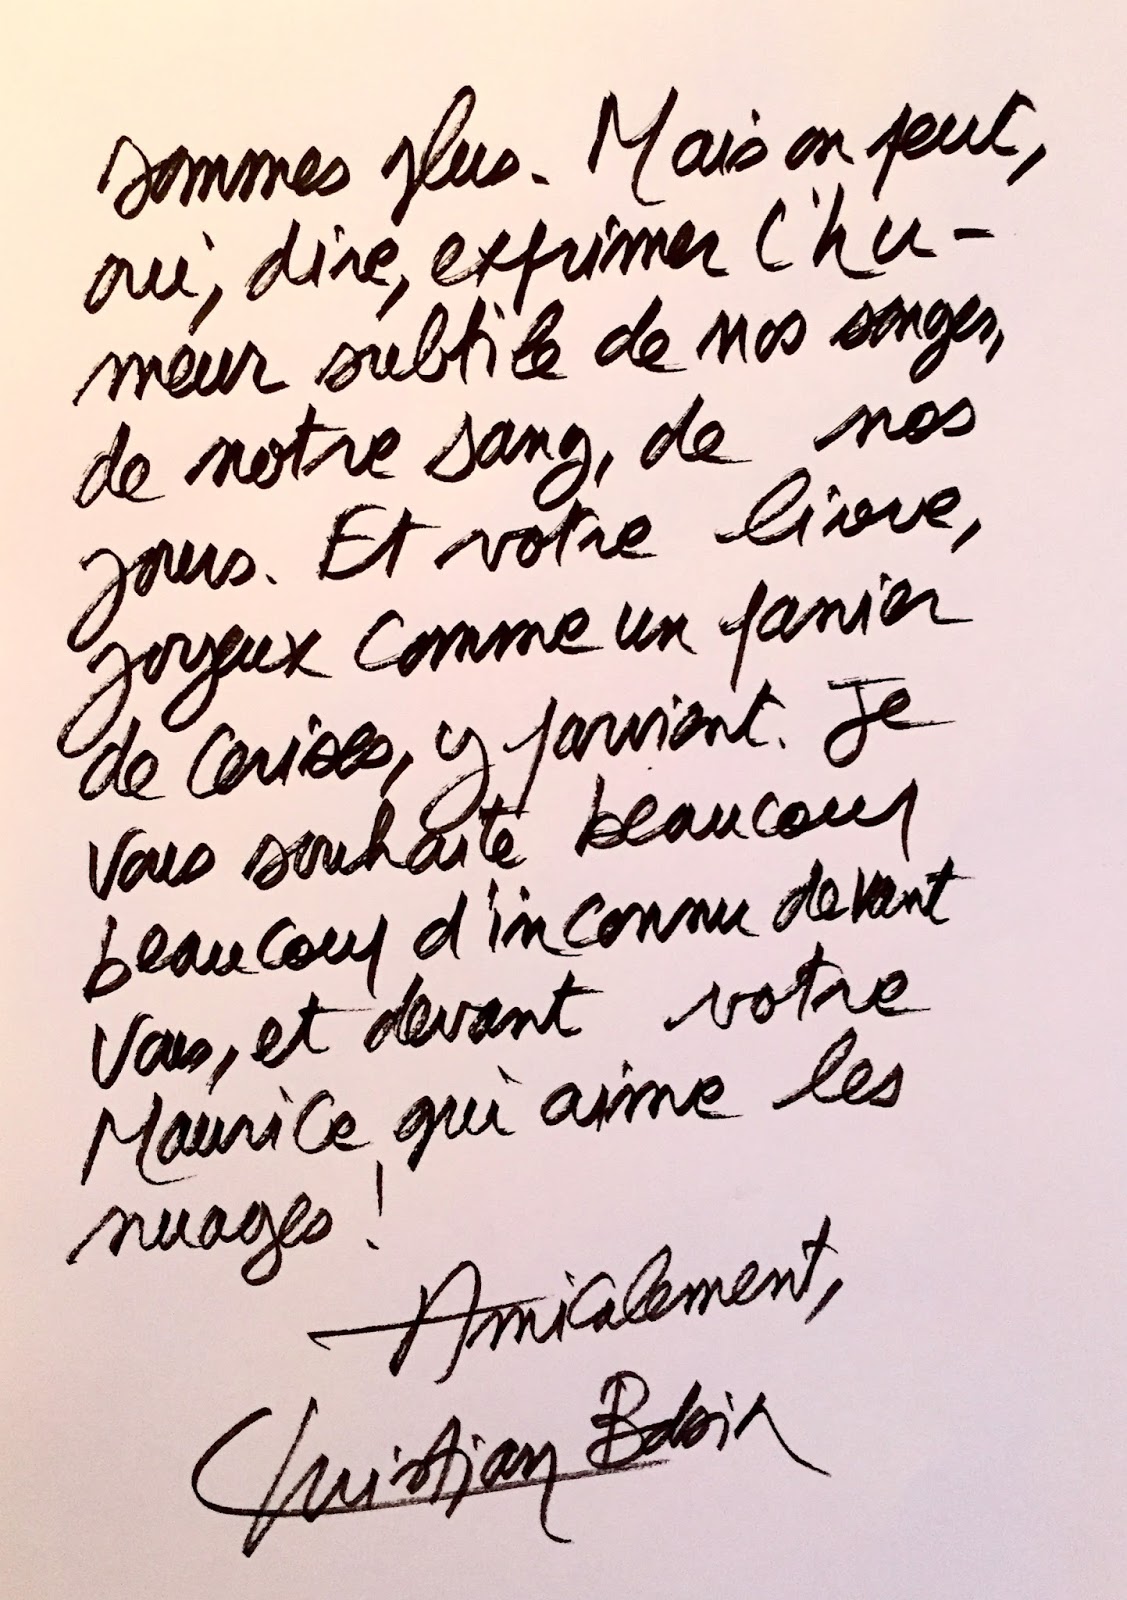 sommes plus. Mais on peut,
oui, dire, exprimer l'hu-
meur subtile de nos songes,
de notre sang, de nos
jours. Et votre livre,
joyeux comme un panier
de cerises, y parvient. Je
vous souhaite beaucoup
beaucoup d'inconnu devant
vous, et devant votre
Maurice qui aime les
nuages !
Amicalement,
Christian Bobin